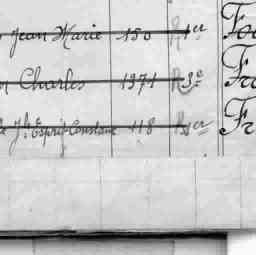 Jean Marie 150 R 1er Fo
Charles 1371 R 3e Fr
Jh Esprit Constant 118 R 1er Fr